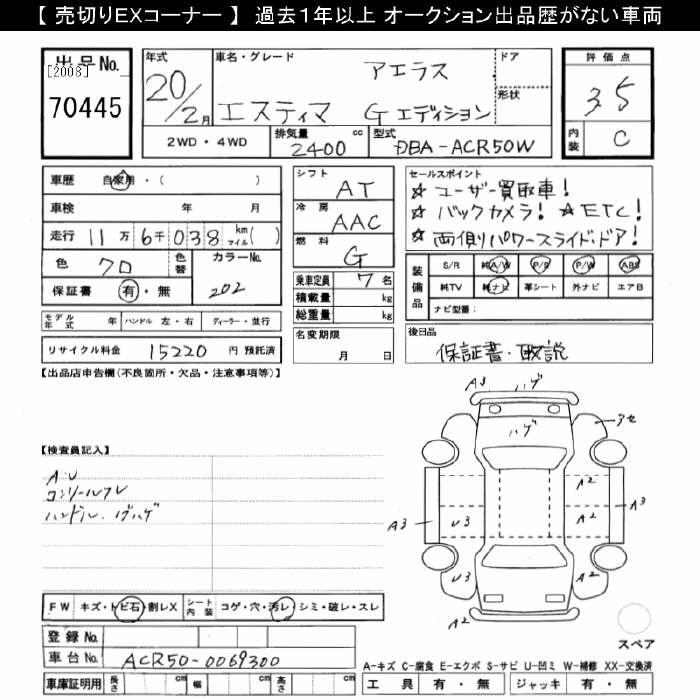 【 売切りEXコーナー 】 過去1年以上 オークション出品歴がない車両
出品No.
[2008]
70445
年式
20/2月
車名・グレード
アエラス
エスティマ G エディション
ドア
形状
2WD・4WD
排気量 2400 cc
型式 DBA-ACR50W
評価点
3.5
内装 C
車歴 自家用・( )
車検 年 月
走行 11万6千038 km マイル( )
色 クロ 色替 カラーNo. 202
保証書 有・無
モデル年式 年 ハンドル 左・右 ディーラー・並行
リサイクル料金 15220 円 預託済
シフト AT
冷房 AAC
燃料 G
乗車定員 7 名
積載量 kg
総重量 kg
名変期限
月 日
セールスポイント
☆ ユーザー買取車!
☆ バックカメラ! ☆ ETC!
☆ 両側パワースライドドア!
装備品 S/R 純A/W P/S P/W ABS
純TV 純ナビ 革シート 外ナビ エアB
ナビ型番:
後日品
保証書・取説
【出品店申告欄(不良箇所・欠品・注意事項等)】
【検査員記入】
A・U
コンソールスレ
ハンドル・
FW キズ・トビ石・割レX シート内装 コゲ・穴・汚レ・シミ・破レ・スレ
登録 No.
車台 No. ACR50-0069300
車庫証明用 長さ cm 幅 cm 高さ cm
A3 ハゲ
ハゲ
アセ
A2
A3 U3 A2 A3
U3 A2
A2
スペア
A-キズ C-腐食 E-エクボ S-サビ U-凹ミ W-補修 XX-交換済
工具 有・無 ジャッキ 有・無